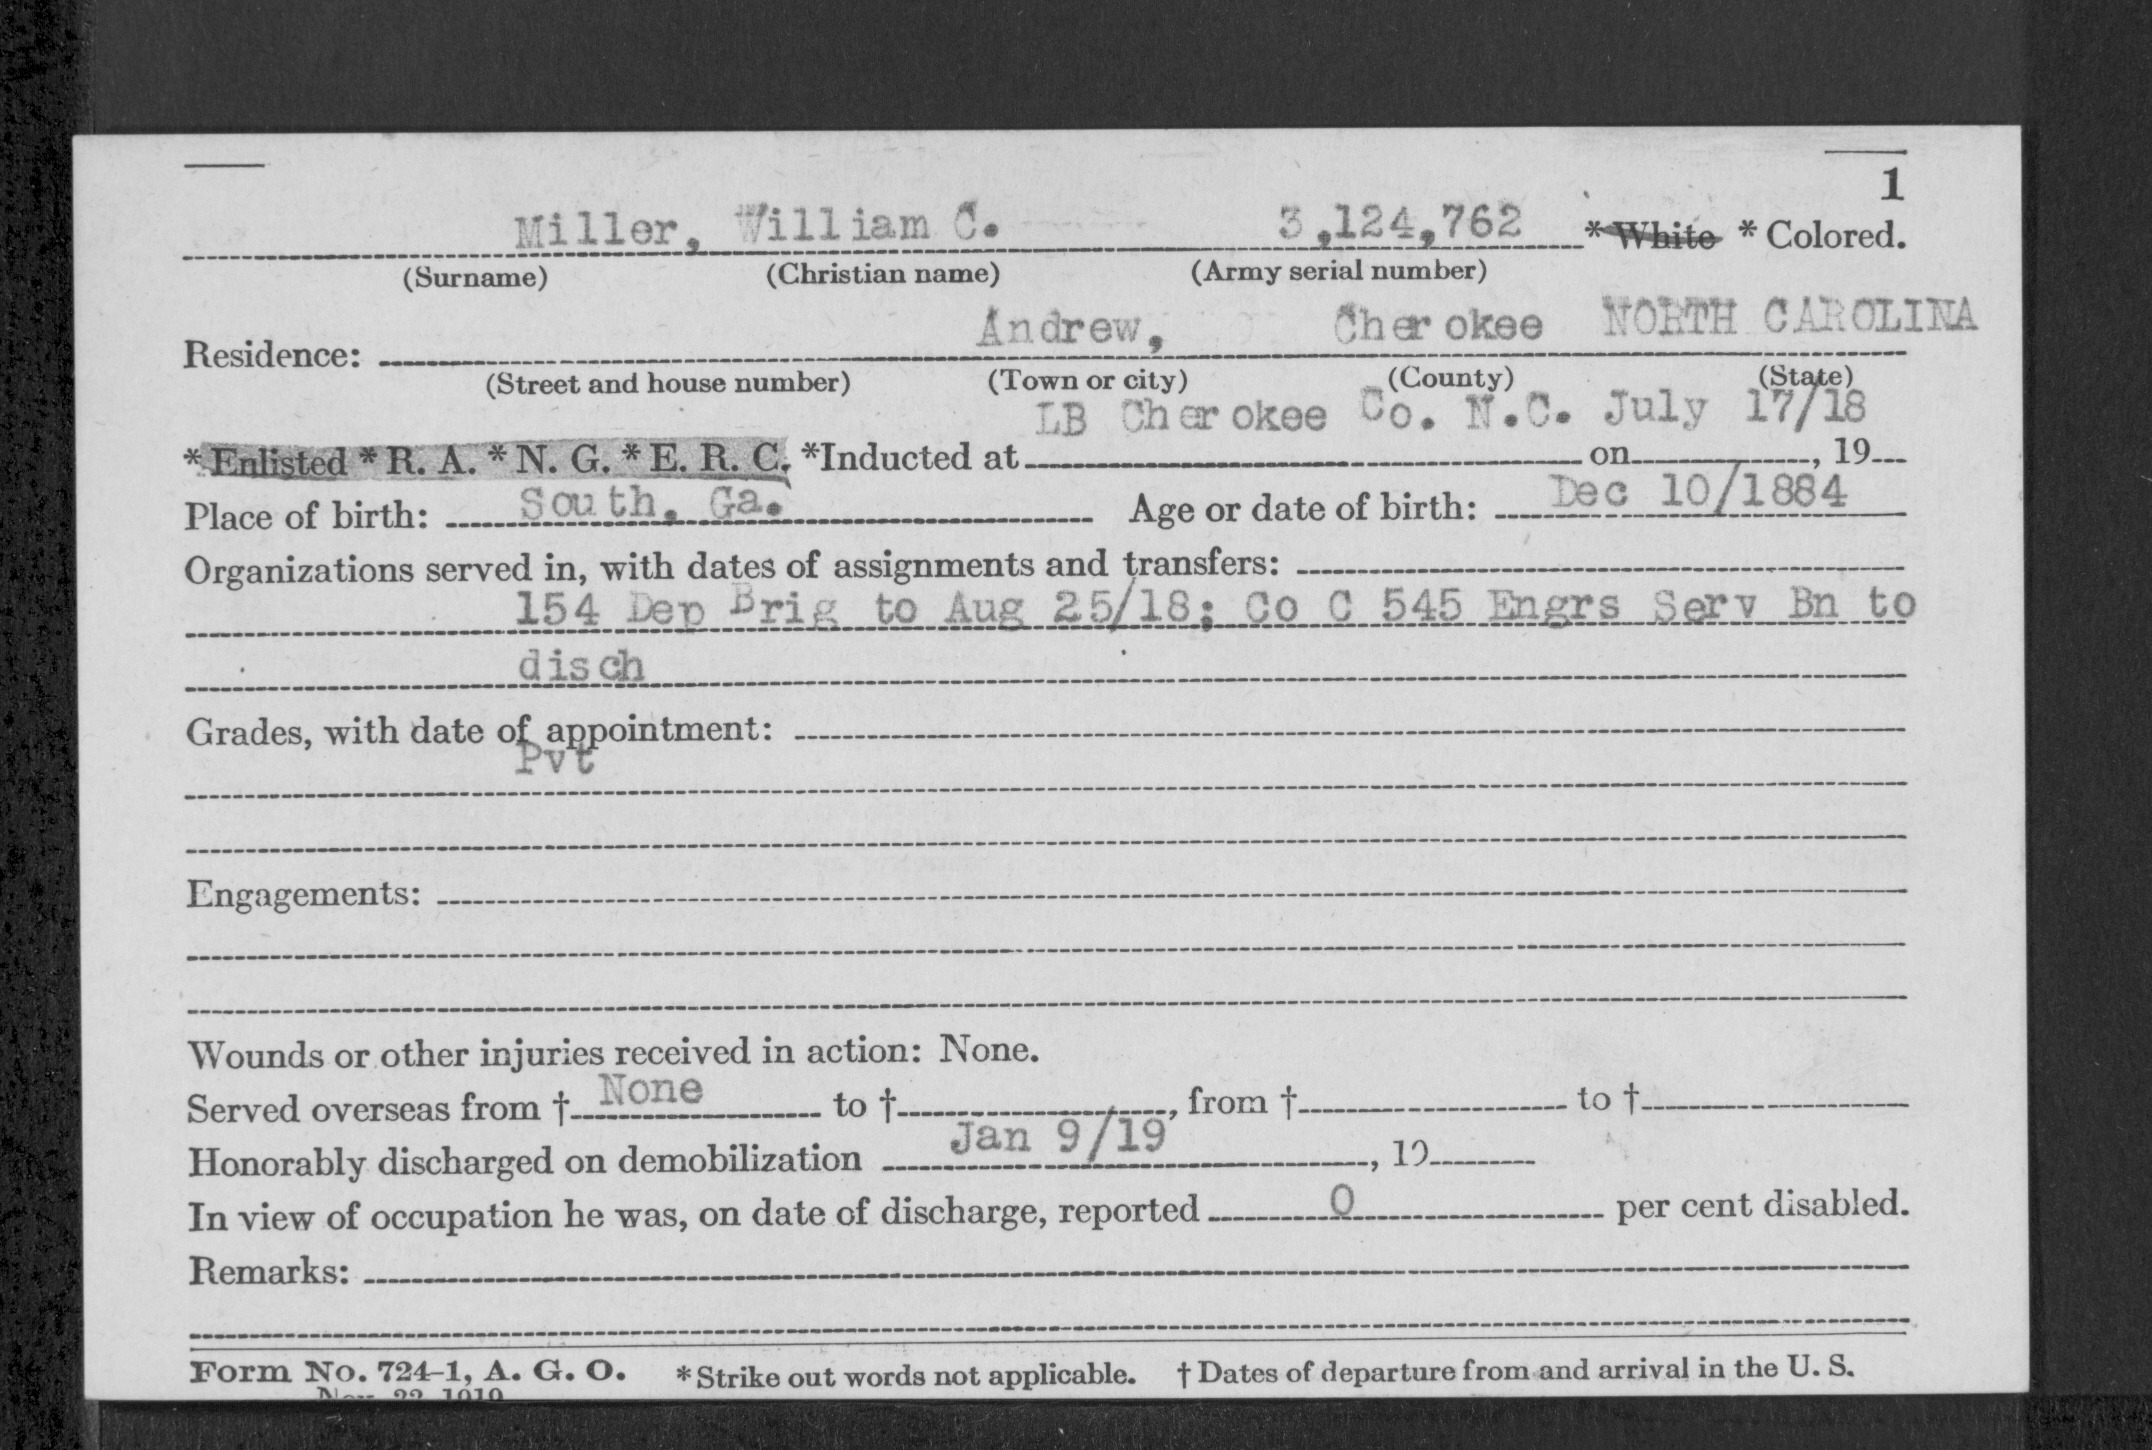 1
Miller, William C. 3,124,762 * White * Colored.
(Surname) (Christian name) (Army serial number)
Residence: Andrew, Cherokee NORTH CAROLINA
(Street and house number) (Town or city) (County) (State)
LB Cherokee Co. N.C. July 17/18
* Enlisted * R. A. * N. G. * E. R. C. *Inducted at on , 19
Place of birth: South, Ga. Age or date of birth: Dec 10/1884
Organizations served in, with dates of assignments and transfers:
154 Dep Brig to Aug 25/18; Co C 545 Engrs Serv Bn to
disch
Grades, with date of appointment:
Pvt
Engagements:
Wounds or other injuries received in action: None.
Served overseas from † None to † , from † to †
Honorably discharged on demobilization Jan 9/19 , 19
In view of occupation he was, on date of discharge, reported 0 per cent disabled.
Remarks:
Form No. 724-1, A. G. O. * Strike out words not applicable. † Dates of departure from and arrival in the U. S.
Nov. 22, 1919